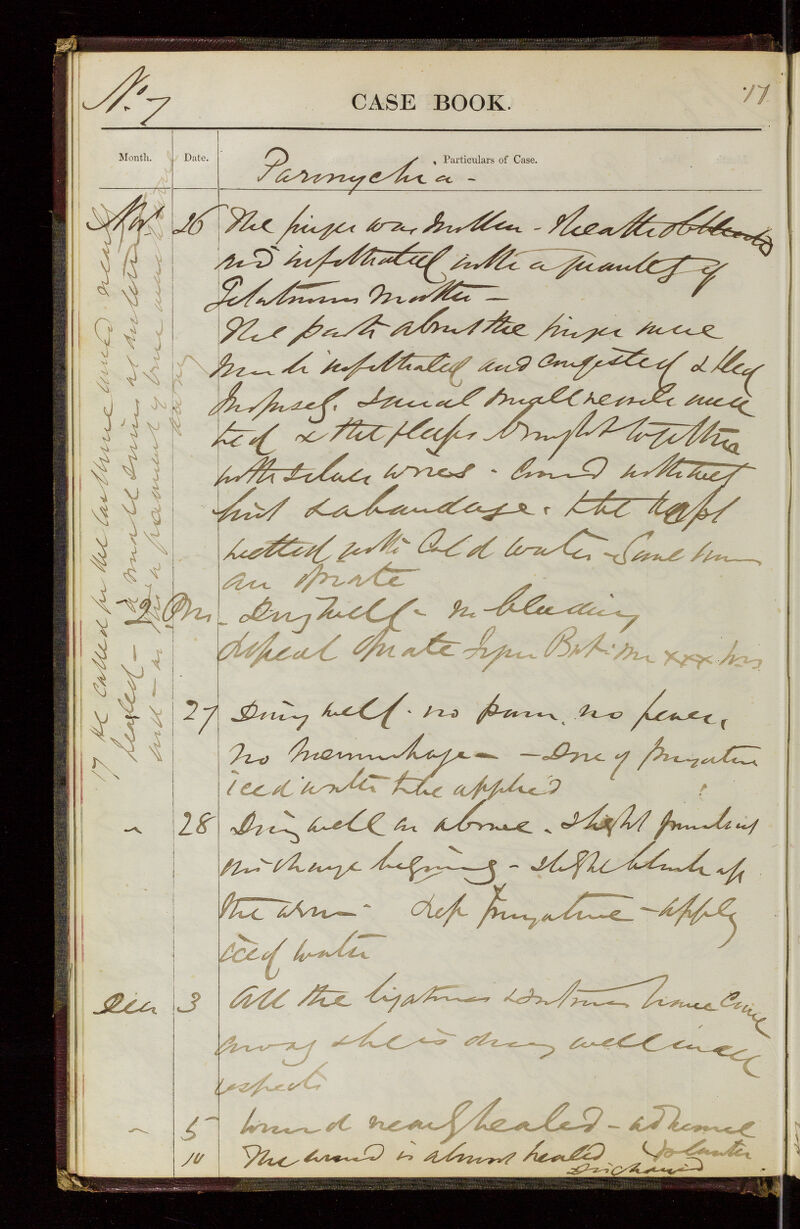 No. 7
CASE BOOK.
17
Month.
Date.
Particulars of Case.
Paronychia -
Novr 26 The finger was swollen - sheath
and infiltrated with a quantity of
Gelatinous matter -
The parts about the finger were
much infiltrated and congested & bled
profusely. Several small vessels were
tied & the flaps brought together
with silver wires - covered with wet
lint & a bandage. to be kept
wetted with Cold water - Gave her
an opiate
Doing well - no bleeding
Repeat opiate xxx
27 Doing well - no pain, no fever,
no hemorrhage - - Dose of purgative
iced water to be applied
" 28 Doing well as above. slight purulent
discharge begining - slight blush up
the arm - Rep purgative - apply
iced water
Decr 3 All the ligatures & sutures have come
away she is doing well in all
respects
" 5 Wound nearly healed - adhesive
plaster
10 The wound is almost healed
Discharged
17 He called the wound nearly
healed - a small sinus
and - as if a of bone were